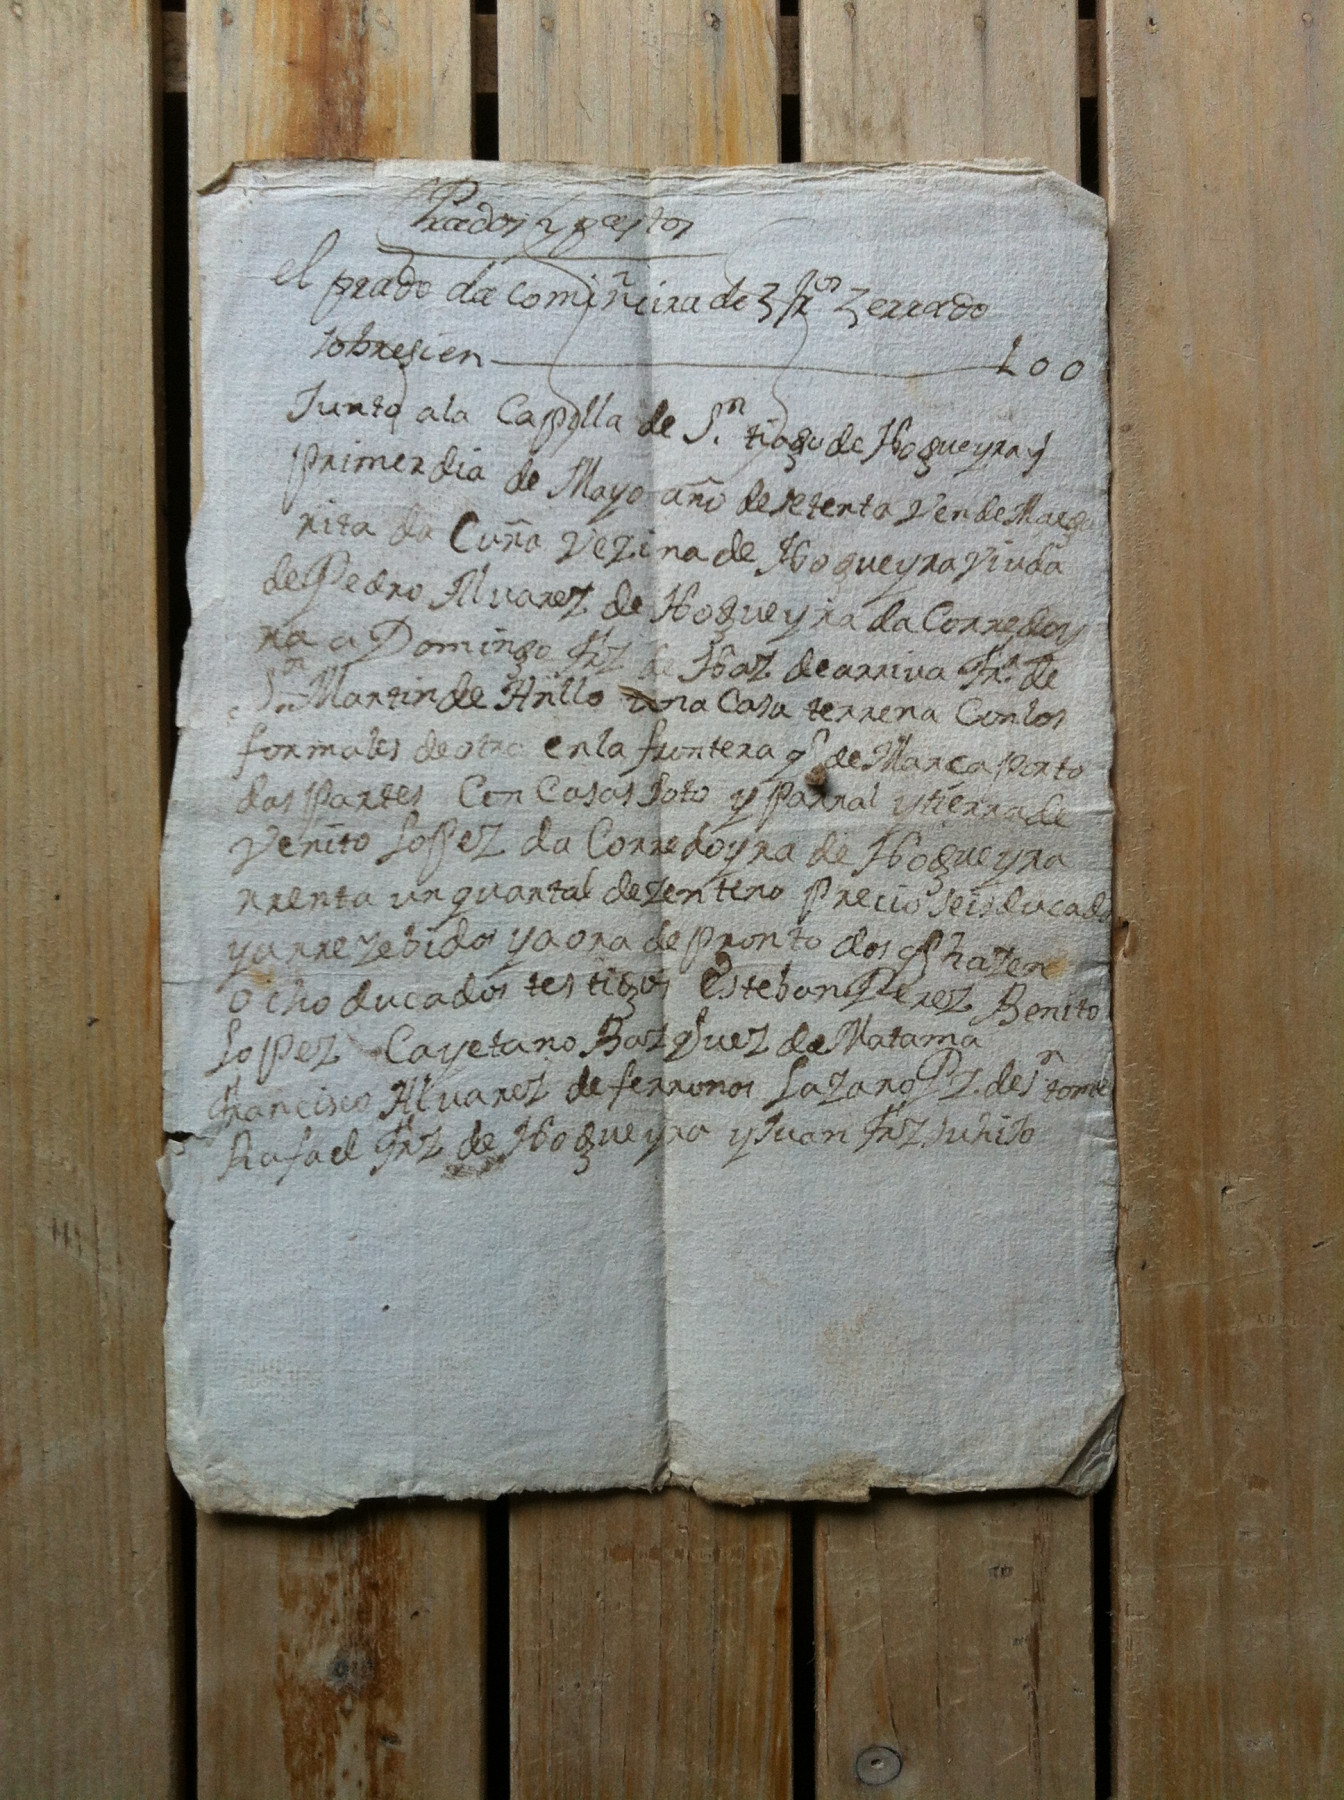 Prados y pastos
el prado da comiñeira de 3 fr.os zerrado
sobresien 100
Junto ala Capylla de S.n tiago de Nogueyra y
primer dia de Mayo año de setenta Vende Marga
rita da Cuña Vezina de Nogueyra viuda
de Pedro Alvarez de Nogueyra da Corredoy
ra a Domingo Frz de Naz de arriva Fr.a de
S.n Martin de una Casa terrena Con los
formales de otra en la frontera q.e de Marca porto
das partes Con Casas soto y parral y tierra de
Venito Lopez da Corredoyra de Nogueyra
rrenta un quartal de zenteno precio seis ducado
ya rrezebidos y aora de pronto dos q.e hazen
ocho ducados testigos Esteban Perez Benito
Lopez Cayetano Bazquez de Matama
Francisco Alvarez de ferronos Lazaro Pz. de S.n tome
Rafael Frz de Nogueyra y Juan Frz su hijo